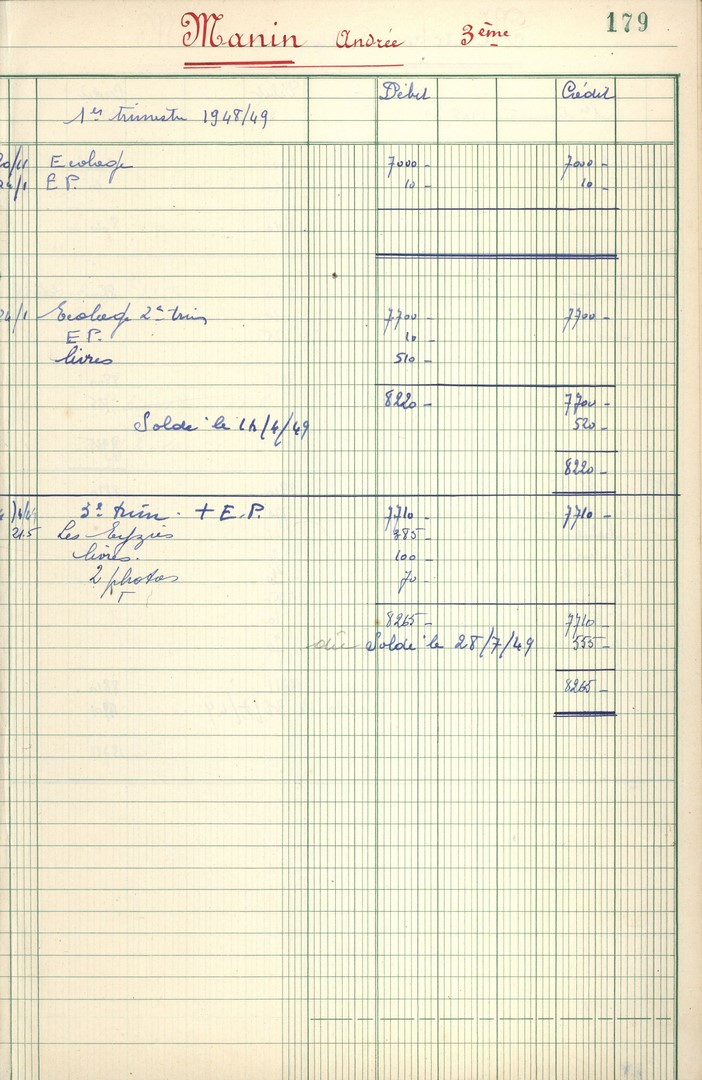 Manin Andrée 3ème 179
Débit Crédit
1er trimestre 1948/49
Ecolage 7000 - 7000 -
E P. 10 - 10 -
24/1 Ecolage 2e trim 7700 - 7700 -
E P. 10 -
livres 510 -
8220 - 7700 -
Solde le 14/4/49 520 -
8220 -
3e trim. + E.P. 7710 - 7710 -
21.5 Les Eyzies 385 -
livres. 100 -
2 photos 70 -
8265 - 7710 -
dû Solde le 28/7/49 555 -
8265 -